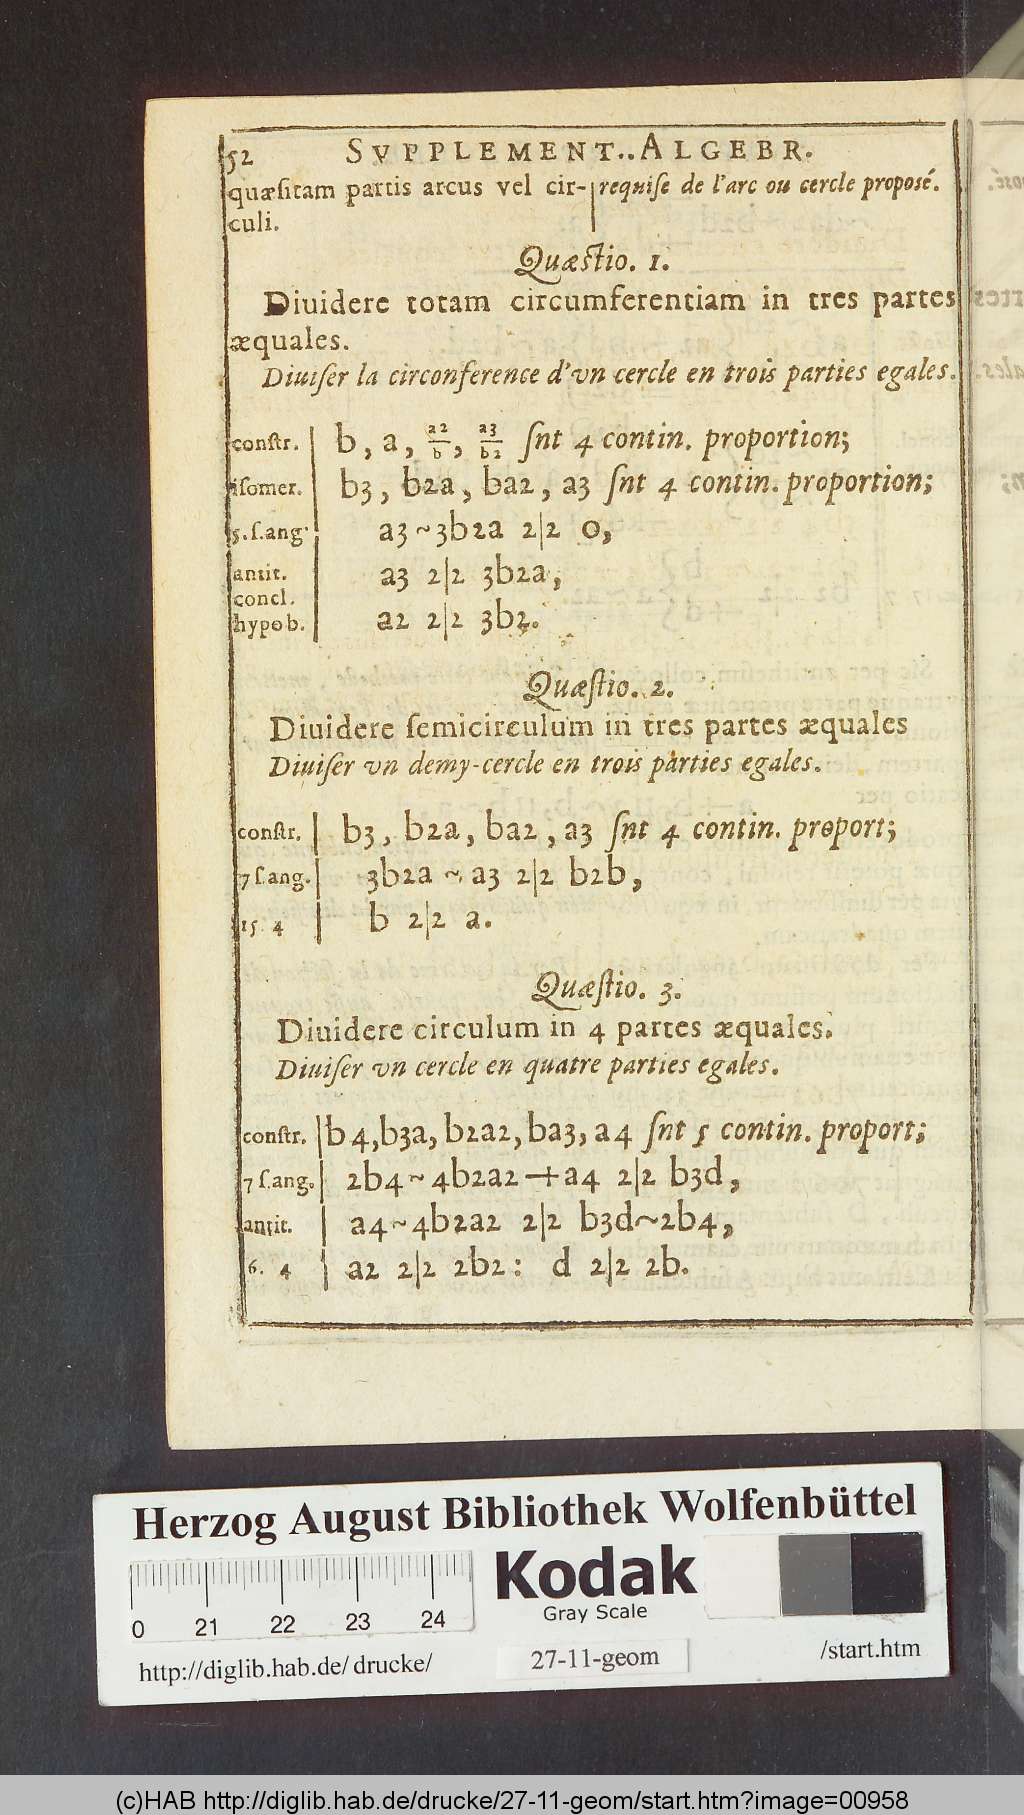 52 SVPPLEMENT..ALGEBR.
quæsitam partis arcus vel cir-
culi.
requise de l'arc ou cercle proposé.
Quæstio. 1.
Diuidere totam circumferentiam in tres partes
æquales.
Diuiser la circonference d'vn cercle en trois parties egales.
constr. | b, a, a2/b, a3/b2 snt 4 contin. proportion;
isomer. | b3, b2a, ba2, a3 snt 4 contin. proportion;
5. s. ang. | a3 ~ 3b2a 2|2 0,
antit. | a3 2|2 3b2a,
concl.
hypob. | a2 2|2 3b2.
Quæstio. 2.
Diuidere semicirculum in tres partes æquales
Diuiser vn demy-cercle en trois parties egales.
constr. | b3, b2a, ba2, a3 snt 4 contin. proport;
7 s. ang. | 3b2a ~ a3 2|2 b2b,
15. 4 | b 2|2 a.
Quæstio. 3.
Diuidere circulum in 4 partes æquales.
Diuiser vn cercle en quatre parties egales.
constr. | b4, b3a, b2a2, ba3, a4 snt 5 contin. proport;
7 s. ang. | 2b4 ~ 4b2a2 + a4 2|2 b3d,
antit. | a4 ~ 4b2a2 2|2 b3d ~ 2b4,
6. 4 | a2 2|2 2b2: d 2|2 2b.
Herzog August Bibliothek Wolfenbüttel
Kodak
Gray Scale
0 21 22 23 24
http://diglib.hab.de/drucke/ 27-11-geom /start.htm
(c)HAB http://diglib.hab.de/drucke/27-11-geom/start.htm?image=00958